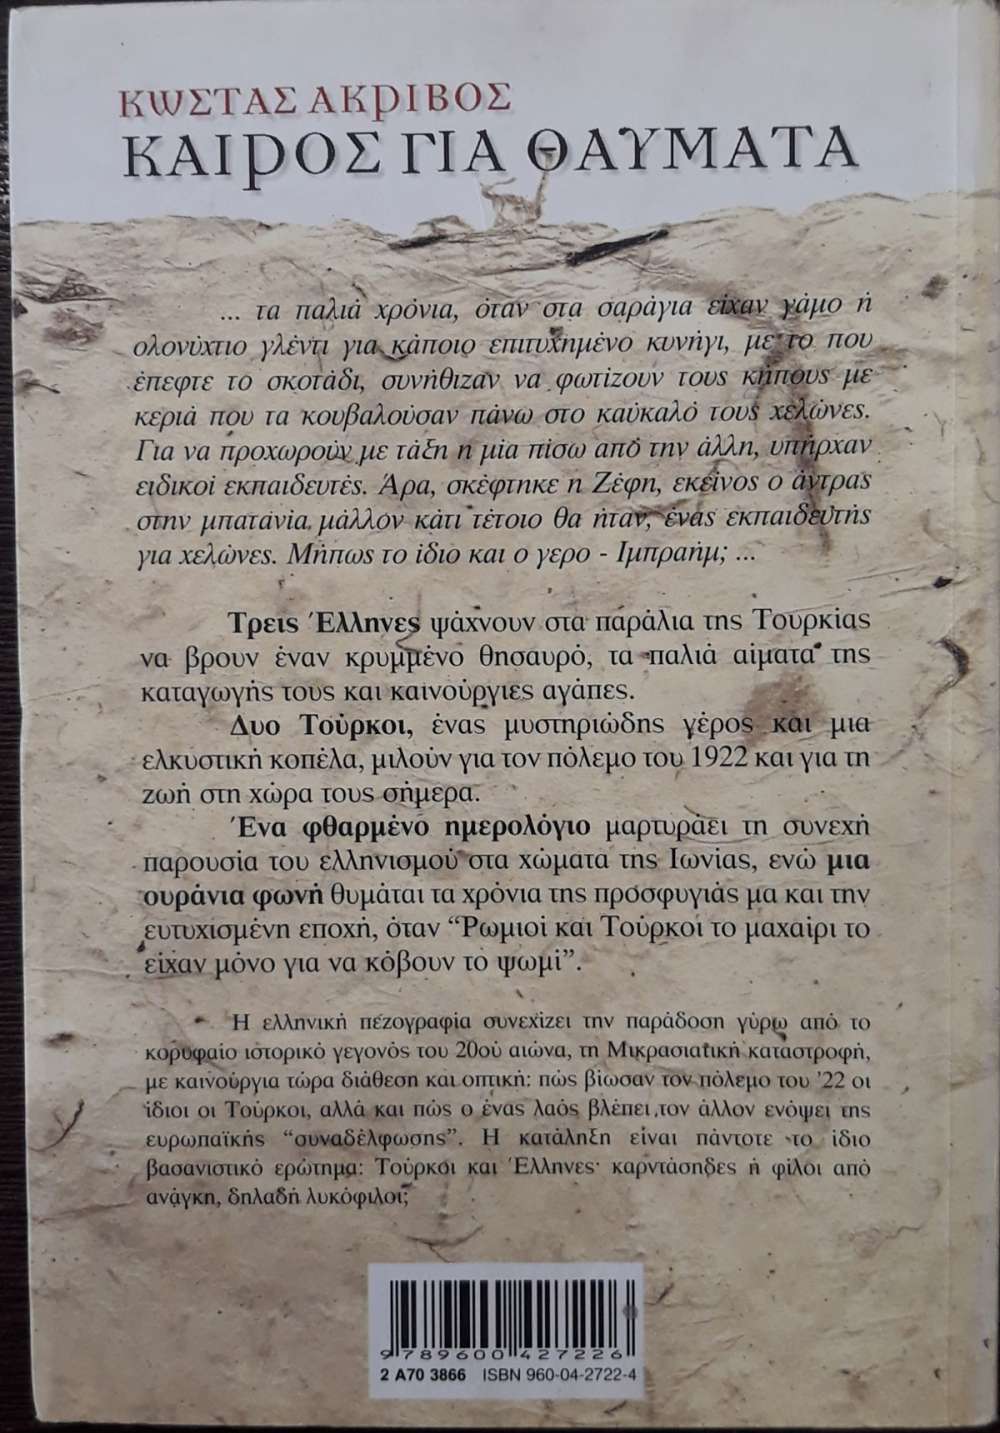 ΚΩΣΤΑΣ ΑΚΡΙΒΟΣ
ΚΑΙΡΟΣ ΓΙΑ ΘΑΥΜΑΤΑ
... τα παλιά χρόνια, όταν στα σαράγια είχαν γάμο ή
ολονύχτιο γλέντι για κάποιο επιτυχημένο κυνήγι, με το που
έπεφτε το σκοτάδι, συνήθιζαν να φωτίζουν τους κήπους με
κεριά που τα κουβαλούσαν πάνω στο καύκαλό τους χελώνες.
Για να προχωρούν με τάξη η μία πίσω από την άλλη, υπήρχαν
ειδικοί εκπαιδευτές. Άρα, σκέφτηκε η Ζέφη, εκείνος ο άντρας
στην μπατανία μάλλον κάτι τέτοιο θα ήταν, ένας εκπαιδευτής
για χελώνες. Μήπως το ίδιο και ο γερο - Ιμπραήμ; ...
Τρεις Έλληνες ψάχνουν στα παράλια της Τουρκίας
να βρουν έναν κρυμμένο θησαυρό, τα παλιά αίματα της
καταγωγής τους και καινούργιες αγάπες.
Δυο Τούρκοι, ένας μυστηριώδης γέρος και μια
ελκυστική κοπέλα, μιλούν για τον πόλεμο του 1922 και για τη
ζωή στη χώρα τους σήμερα.
Ένα φθαρμένο ημερολόγιο μαρτυράει τη συνεχή
παρουσία του ελληνισμού στα χώματα της Ιωνίας, ενώ μια
ουράνια φωνή θυμάται τα χρόνια της προσφυγιάς μα και την
ευτυχισμένη εποχή, όταν “Ρωμιοί και Τούρκοι το μαχαίρι το
είχαν μόνο για να κόβουν το ψωμί”.
Η ελληνική πεζογραφία συνεχίζει την παράδοση γύρω από το
κορυφαίο ιστορικό γεγονός του 20ού αιώνα, τη Μικρασιατική καταστροφή,
με καινούργια τώρα διάθεση και οπτική: πώς βίωσαν τον πόλεμο του ’22 οι
ίδιοι οι Τούρκοι, αλλά και πώς ο ένας λαός βλέπει τον άλλον ενόψει της
ευρωπαϊκής “συναδέλφωσης”. Η κατάληξη είναι πάντοτε το ίδιο
βασανιστικό ερώτημα: Τούρκοι και Έλληνες· καρντάσηδες ή φίλοι από
ανάγκη, δηλαδή λυκόφιλοι;
9 789600 427226
2 Α70 3866 ISBN 960-04-2722-4